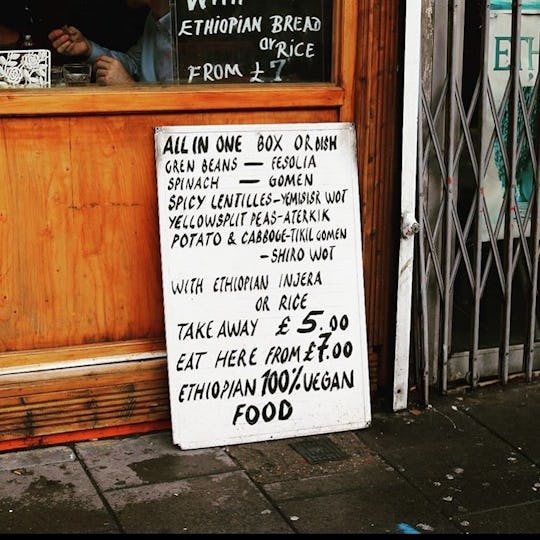 WITH
ETHIOPIAN BREAD
or RICE
FROM £7
ETH
ALL IN ONE BOX OR DISH
GREN BEANS — FESOLIA
SPINACH — GOMEN
SPICY LENTILLES-YEMISISR WOT
YELLOWSPLIT PEAS-ATERKIK
POTATO & CABBOGE-TIKIL GOMEN
-SHIRO WOT
WITH ETHIOPIAN INJERA
OR RICE
TAKE AWAY £5.00
EAT HERE FROM £7.00
ETHIOPIAN 100% VEGAN
FOOD